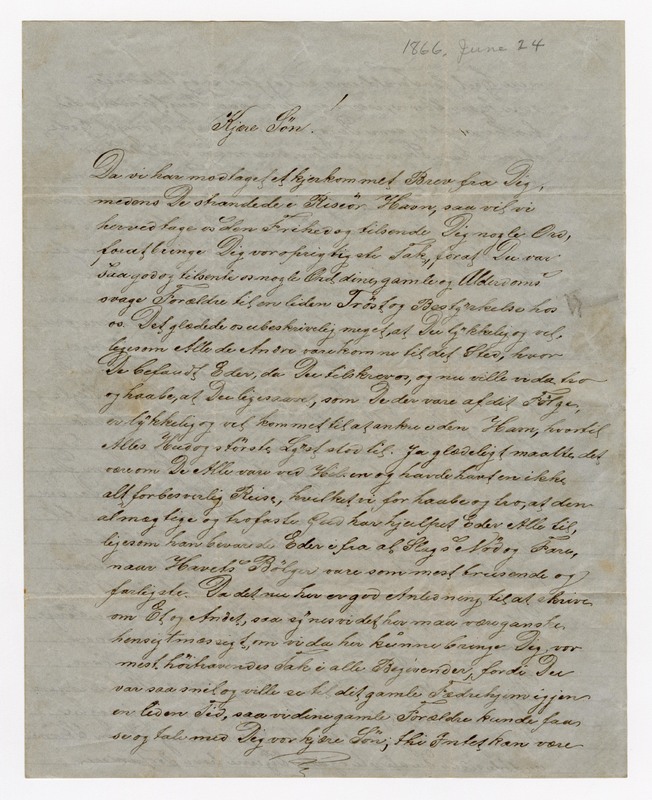 1866, June 24
Kjære Søn!
Da vi har modtaget et kjerkommet Brev fra Dig,
medens De strandede i Risøer Havn, saa vil vi
herved tage os den Frihed og tilsende Dig nogle Ord,
for at bringe Dig vor oprigtigste Tak, for at Du var
saa god og tilsente os nogle Ord, dine gamle og Alderdoms
svage Forældre til en liden Trøst og Bestyrkelse hos
os. Det glædede os ubeskrivelig meget, at Du lykkelig og vel,
ligesom Alle de Andre vare komne til det Sted, hvor
De befandt Eder, da Du tilskrev os, og nu ville vi da tro
og haabe, at Du ligesaavel, som De der vare af dit Følge,
er lykkelig og vel kommet til at ankre i den Havn, hvortil
Alles Hu og største Lyst stod til. Ja glædeligt maatte det
være om De Alle vare ved Helsen og havde havt en ikke
alt for besværlig Reise, hvilket vi for haabe og tro, at den
almægtige og trofaste Gud har hjulpet Eder Alle til,
ligesom han bevarede Eder i fra al Slags Nød og Fare,
naar Havets Bølger vare som mest brusende og
farligste. Da det nu her er god Anledning til at skrive
om Et og Andet, saa synes vi det her maa være ganske
hensigtmæssigt, om vi da her kunne bringe Dig vor
mest høitravendes Tak i alle Begivender, fordi Du
var saa snil og ville se til det gamle Fædrehjem igjen
en liden Tid, saa vi dine gamle Forældre kunde faa
se og tale med Dig vor kjære Søn; thi Intet kan være